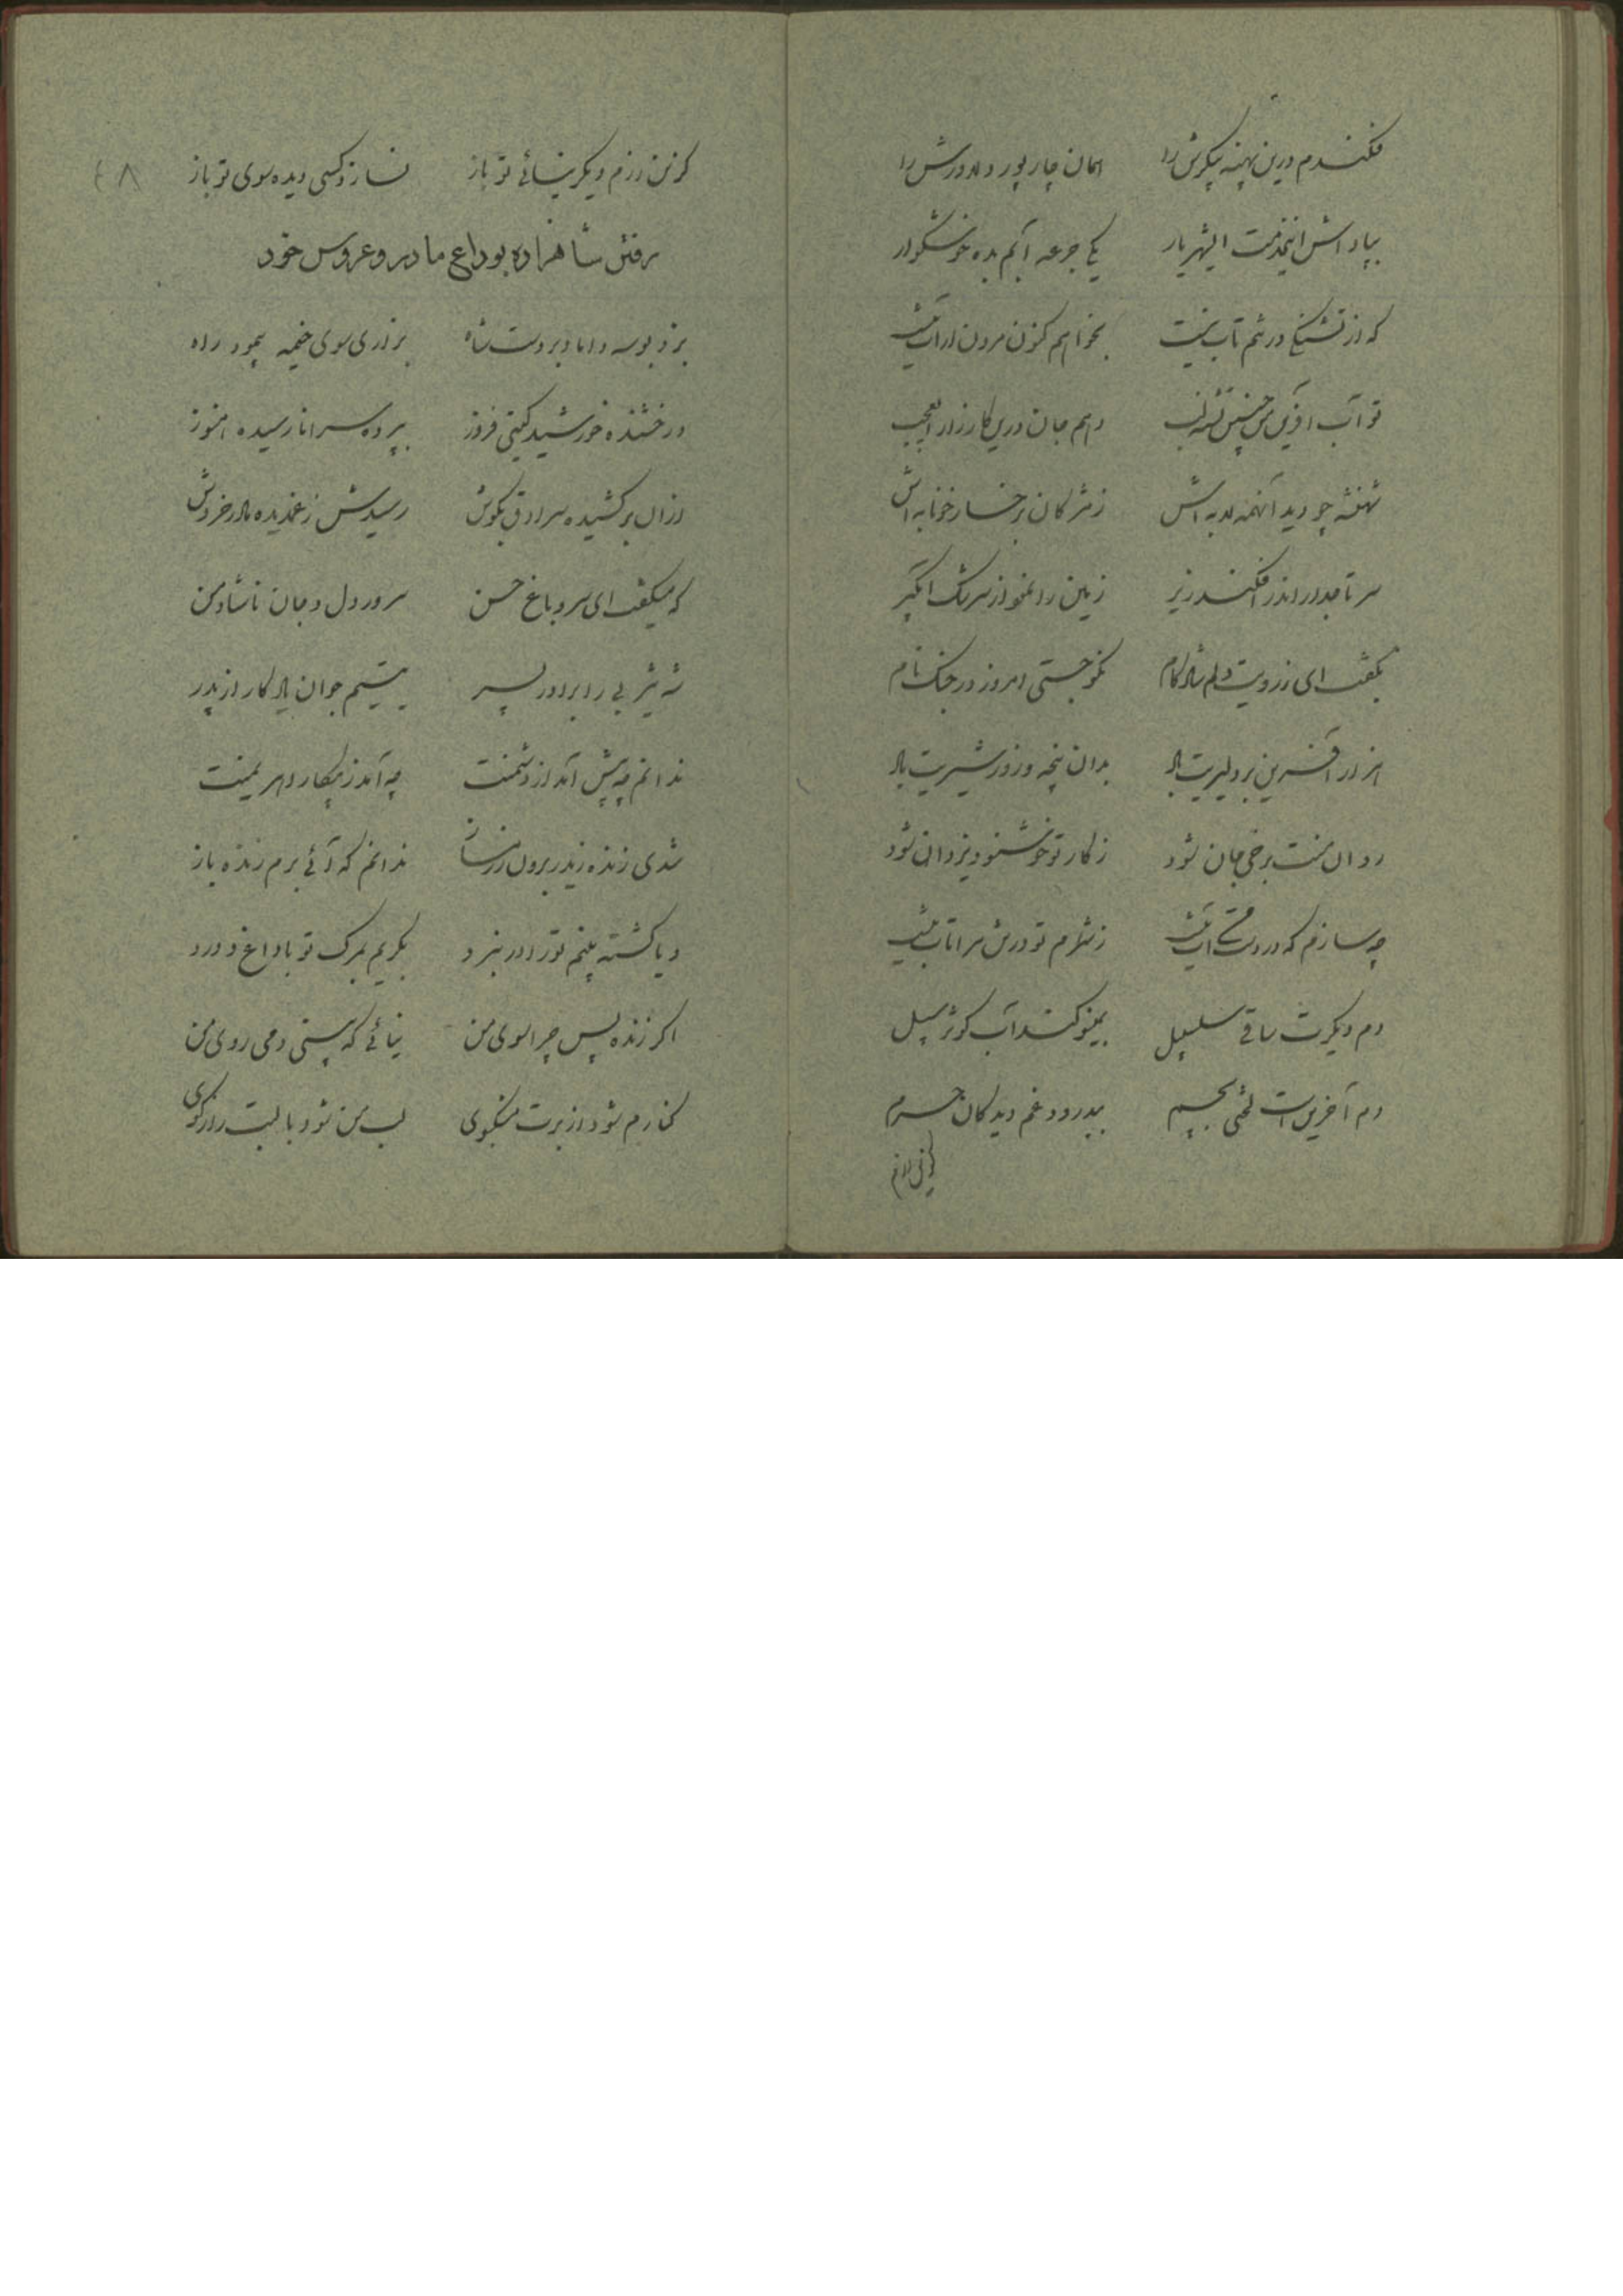 فکندم درین پهنه پیکرش را همان چار پور دلاورش را
بپاداش این خدمت ای شهریار یکی جرعه آبم بده خوشگوار
که از تشنگی در تنم تاب نیست نخواهم کنون مردن ار آب نیست
تو آب آفرین من چنین تشنه لب دهم جان درین کارزار ای عجب
شهنشه چو دید آنهمه لابه اش ز مژگان برخسار خونابه اش
سر تاجدار اندر افکند زیر زمین را نمود از سرشک آبگیر
بگفت ای ز رویت دلم شادکام نکو جستی امروز در جنگ نام
هزار آفرین بر دلیریت باد بدان پنجه و زور شیریت باد
روان منت برخی جان شود ز کار تو خوشنود یزدان شود
چه سازم که در دست من آب نیست ز شرم تو در تن مرا تاب نیست
دم دیگرت ساقی سلسبیل بمینو کند آب کوثر سبیل
دم آخرین است لختی بچم ببدرود غم دیدگان حرم
کزین رزم
کزین رزم دیگر نیائی تو باز نسازد کسی دیده سوی تو باز
٤٨
رفتن شاهزاده بوداع مادر و عروس خود
بزد بوسه داماد بر دست شاه بزاری سوی خیمه پیمود راه
درخشنده خورشید گیتی فروز بپرده سرا نارسیده هنوز
ازان برکشیده سرادق بگوش رسیدش ز غمدیده مادر خروش
که میگفت ای سرو باغ حسن سرور دل و جان ناشاد من
شه یثربی را برادر پسر یتیم جوان یادگار از پدر
ندانم چه پیش آمد از دشمنت چه آمد ز پیکار اهریمنت
شدی زنده زیدر برون رزمساز ندانم که آئی برم زنده باز
و یا کشته بینم تو را در نبرد بگریم بمرگ تو با داغ و درد
اگر زنده پس چرا سوی من نیائی که بینی دمی روی من
کنارم شود از برت مشکبوی لب من شود با لبت رازگوی